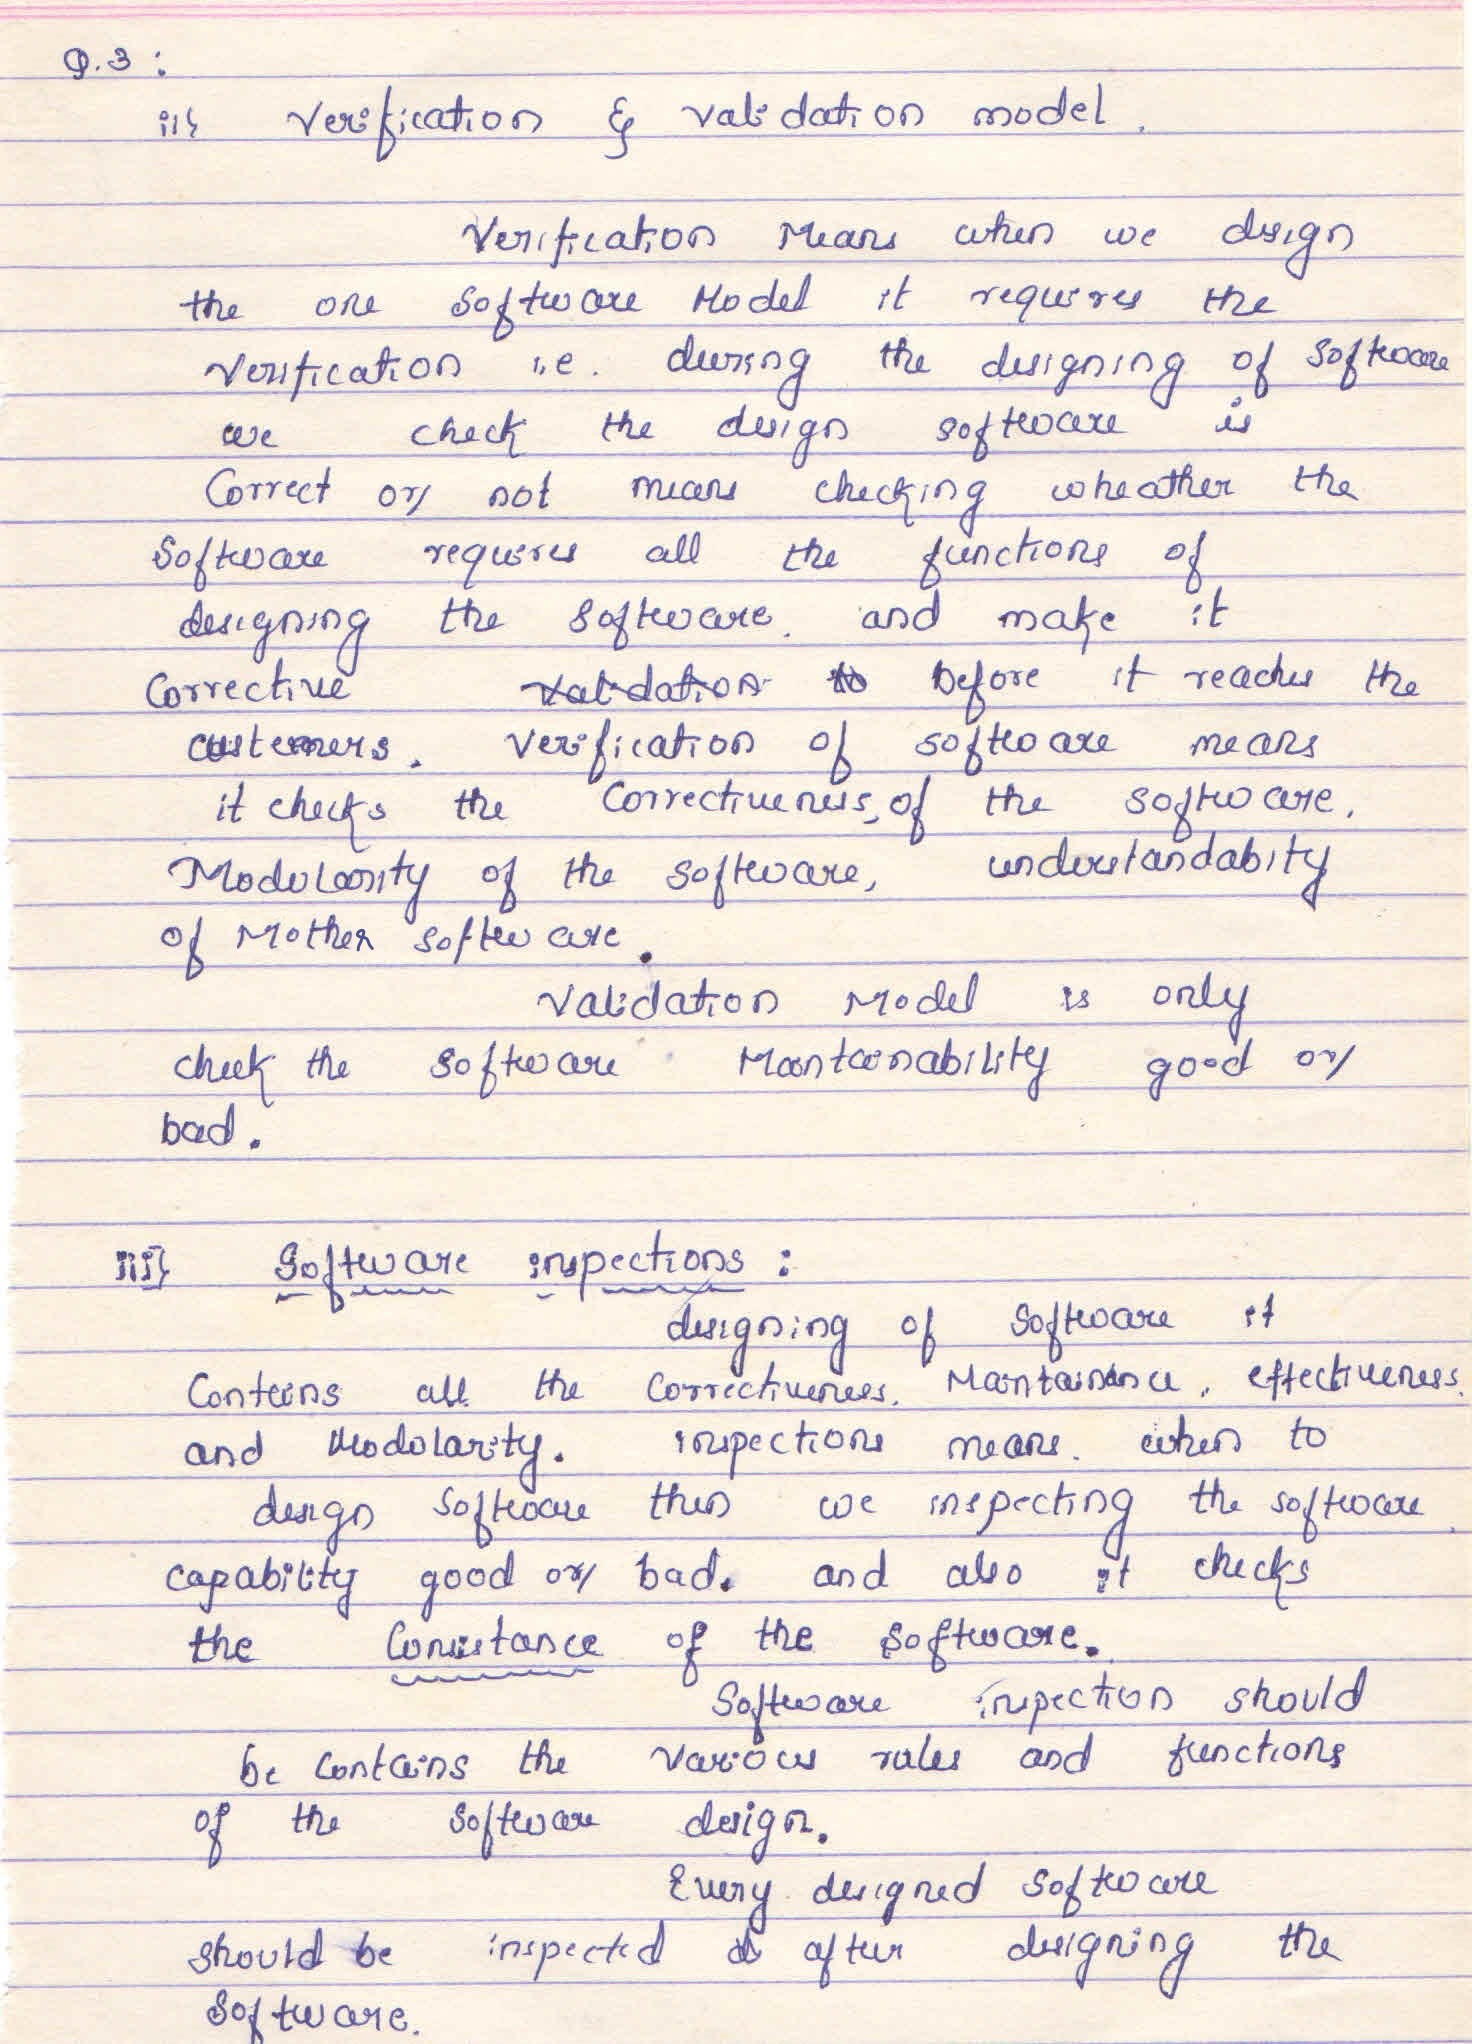 Q.3 :
ii) Verification & validation model.
Verification Means when we design
the one software Model it requires the
Verification i.e. during the designing of software
we check the design software is
Correct or not means checking wheather the
Software requires all the functions of
designing the software. and make it
Corrective validation to before it reaches the
customers. Verification of software means
it checks the Correctiveness, of the software.
Modularity of the software, understandabity
of Mother software.
Validation Model is only
check the software Maintainability good or
bad.
iii) Software inspections :
designing of software it
Contains all the Correctiveness. Maintainance, effectiveness.
and Modularity. inspections means. when to
design software then we inspecting the software
capability good or bad. and also it checks
the Consistance of the software.
Software inspection should
be contains the various rules and functions
of the software design.
Every designed software
should be inspected after designing the
software.